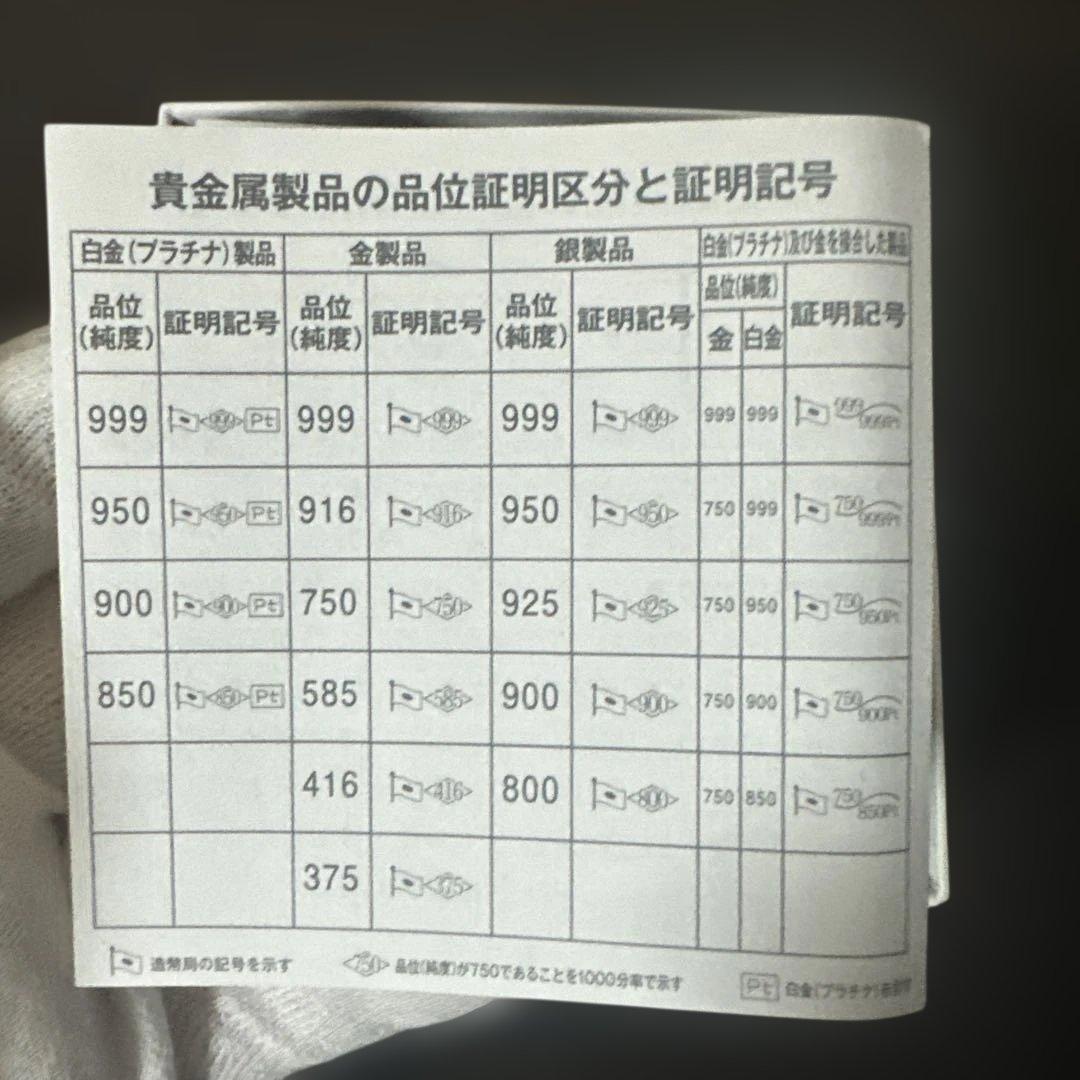 貴金属製品の品位証明区分と証明記号
白金(プラチナ)製品 金製品 銀製品 白金(プラチナ)及び金を接合した製品
品位(純度) 証明記号 品位(純度) 証明記号 品位(純度) 証明記号 品位(純度) 証明記号
金 白金
999 <999> Pt 999 <999> 999 <999> 999 999 999 999Pt
950 <950> Pt 916 <916> 950 <950> 750 999 750 999Pt
900 <900> Pt 750 <750> 925 <925> 750 950 750 950Pt
850 <850> Pt 585 <585> 900 <900> 750 900 750 900Pt
416 <416> 800 <800> 750 850 750 850Pt
375 <375>
造幣局の記号を示す <750> 品位(純度)が750であることを1000分率で示す Pt 白金(プラチナ)